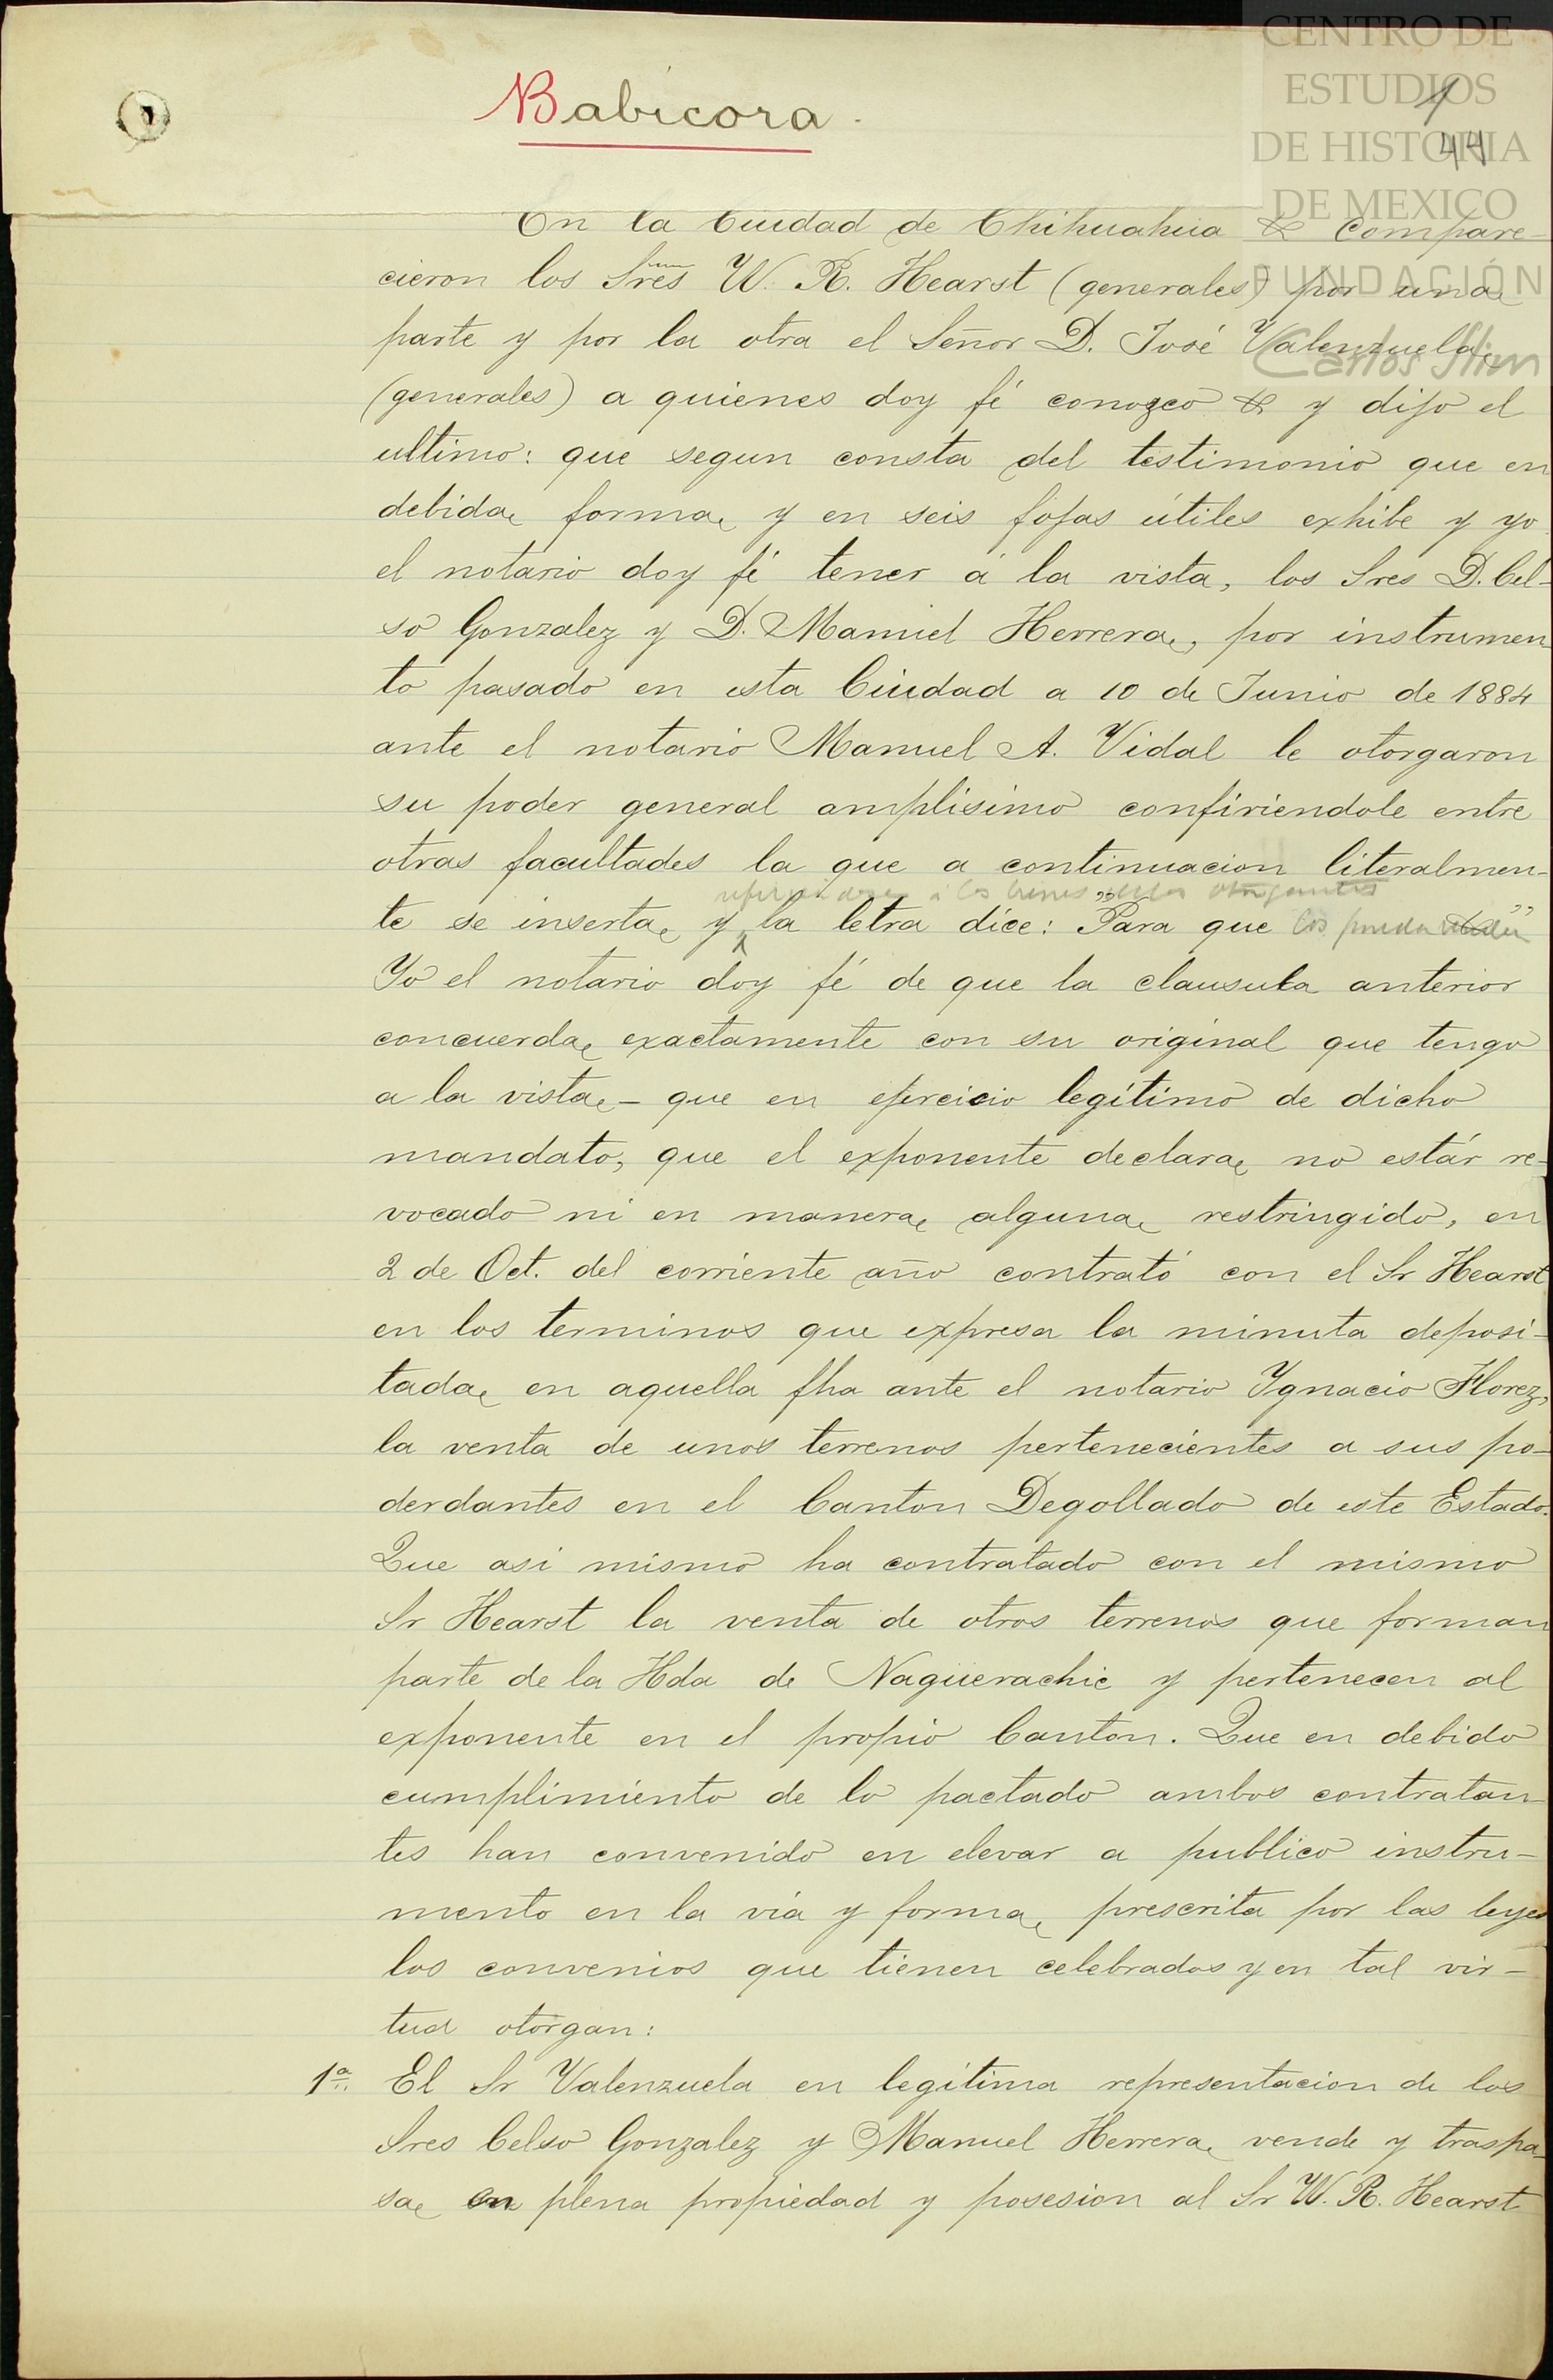 CENTRO DE
ESTUDIOS
DE HISTORIA
DE MEXICO
FUNDACIÓN
Carlos Slim
1
44
Babicora.
En la Ciudad de Chihuahua & compare-
cieron los Sres W. R. Hearst (generales) por una
parte y por la otra el Señor D. José Valenzuela
(generales) a quienes doy fé conozco & y dijo el
ultimo: que segun consta del testimonio que en
debida forma y en seis fojas útiles exhibe y yo
el notario doy fé tener á la vista, los Sres D. Cel-
so Gonzalez y D. Manuel Herrera, por instrumen
to pasado en esta Ciudad a 10 de Junio de 1884
ante el notario Manuel A. Vidal le otorgaron
su poder general amplisimo confiriendole entre
otras facultades la que a continuacion literalmen-
refiriendose a los bienes de los otorgantes
te se inserta y la letra dice: "Para que los pueda vender"
Yo el notario doy fé de que la clausula anterior
concuerda exactamente con su original que tengo
a la vista - que en ejercicio legítimo de dicho
mandato, que el exponente declara no estár re-
vocado ni en manera alguna restringido, en
2 de Oct. del corriente año contrató con el Sr Hearst
en los terminos que expresa la minuta deposi-
tada en aquella fha ante el notario Ygnacio Florez,
la venta de unos terrenos pertenecientes a sus po-
derdantes en el Canton Degollado de este Estado.
Que asi mismo ha contratado con el mismo
Sr Hearst la venta de otros terrenos que forman
parte de la Hda de Nagüerachic y pertenecen al
exponente en el propio Canton. Que en debido
cumplimiento de lo pactado ambos contratan-
tes han convenido en elevar a publico instru-
mento en la via y forma prescrita por las leyes
los convenios que tienen celebrados y en tal vir-
tud otorgan:
1ª El Sr Valenzuela en legítima representacion de los
Sres Celso Gonzalez y Manuel Herrera vende y traspa-
sa en plena propiedad y posesion al Sr W. R. Hearst